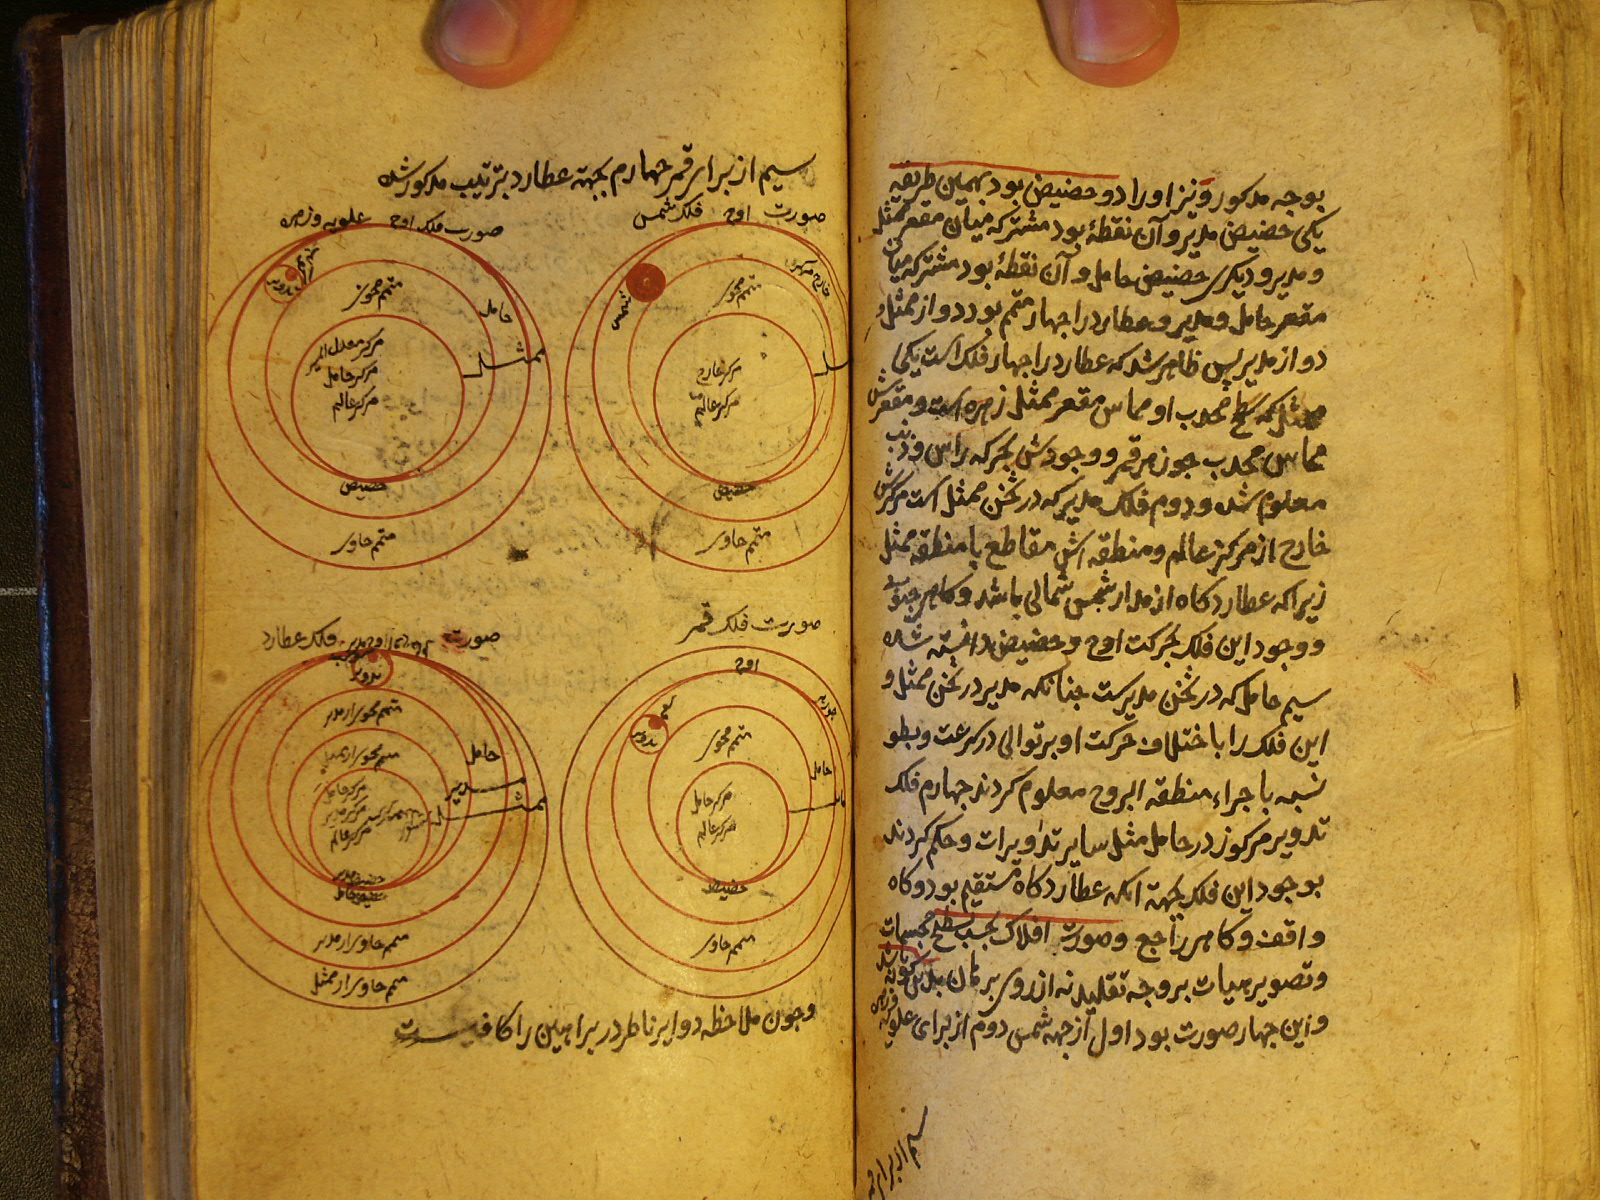 بوجه مذکور و نیز او را دو حضیض بود بهمین طریقه
یکی حضیض مدیر و آن نقطهٔ بود مشترکه میان مقعر ممثل
و مدیر و دیگری حضیض حامل و آن نقطهٔ بود مشترکه میان
مقعر حامل و مدیر و عطارد را چهار متمم بود دو از ممثل و
دو از مدیر پس ظاهر شد که عطارد را چهار فلک است یکی
ممثل که سطح محدب او مماس مقعر ممثل زهره است و مقعرش
مماس محدب جوزهر قمر و وجودش بحرکه راس و ذنب
معلوم شد و دوم فلک مدیر که در ثخن ممثل است مرکزش
خارج از مرکز عالم و منطقه اش مقاطع با منطقه ممثل
زیرا که عطارد کاه از مدار شمس شمالی باشد و کاهی جنوبی
و وجود این فلک بحرکت اوج و حضیض دانسته شده
سیم حامل که در ثخن مدیرست چنانکه مدیر در ثخن ممثل و
این فلک را باختلاف حرکت او بر توالی در سرعت و بطو
نسبه باجراء منطقه البروج معلوم کردند چهارم فلک
تدویر مرکوز در حامل مثل سایر تداویرات و حکم کردند
بوجود این فلک بجهة انکه عطارد کاه مستقیم بود و کاه
واقف و کاهی راجع و صورت افلاک بحسب سطح مجسمات
و تصویر هیات بر وجه تقلید نه از روی برهان بدین کونه باشد
و این چهار صورت بود اول از جهه شمس دوم از برای علویه و زهره
سیم از برای
سیم از برای قمر چهارم بجهته عطارد بترتیب مذکور شده
صورت فلک شمس
اوج
خارج مرکز
شمس
متمم محوی
مرکز خارج
مرکز عالم
حضیض
متمم حاوی
صورت فلک علویه و زهره
اوج
تدویر
متمم محوی
حامل
ممثل
مرکز معدل المسیر
مرکز حامل
مرکز عالم
حضیض
متمم حاوی
صورت فلک قمر
اوج
تدویر
متمم محوی
حامل
مرکز حامل
مرکز عالم
حضیض
متمم حاوی
صورت فلک عطارد
تدویر
متمم محوی از مدیر
متمم محوی از ممثل
حامل
مدیر
ممثل
مرکز حامل
مرکز مدیر
مرکز عالم
حضیض مدیر
حضیض حامل
متمم حاوی از مدیر
متمم حاوی از ممثل
و چون ملاحظه دوایر ناظر در براهین را کافیست